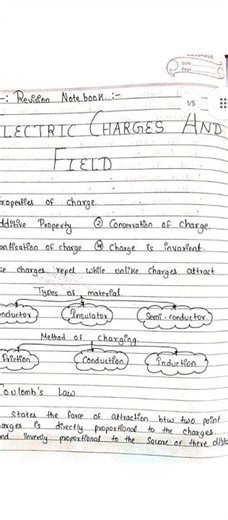 Date
Page
-: Revision Note book :-
1/5
LECTRIC CHARGES AND
FIELD
roperties of charge
dditive Property ② Concervation of charge.
antisation of charge ④ Charge is invarient.
ke charges repel while unlike charges attract
Types of material
onductor Insulator Semi-conductor
Method of charging
Friction Conduction Induction
Coulomb's Law
states the force of attraction btw two point
arges is directly proportional to the charges
nd inversly proportional to the square of there dista